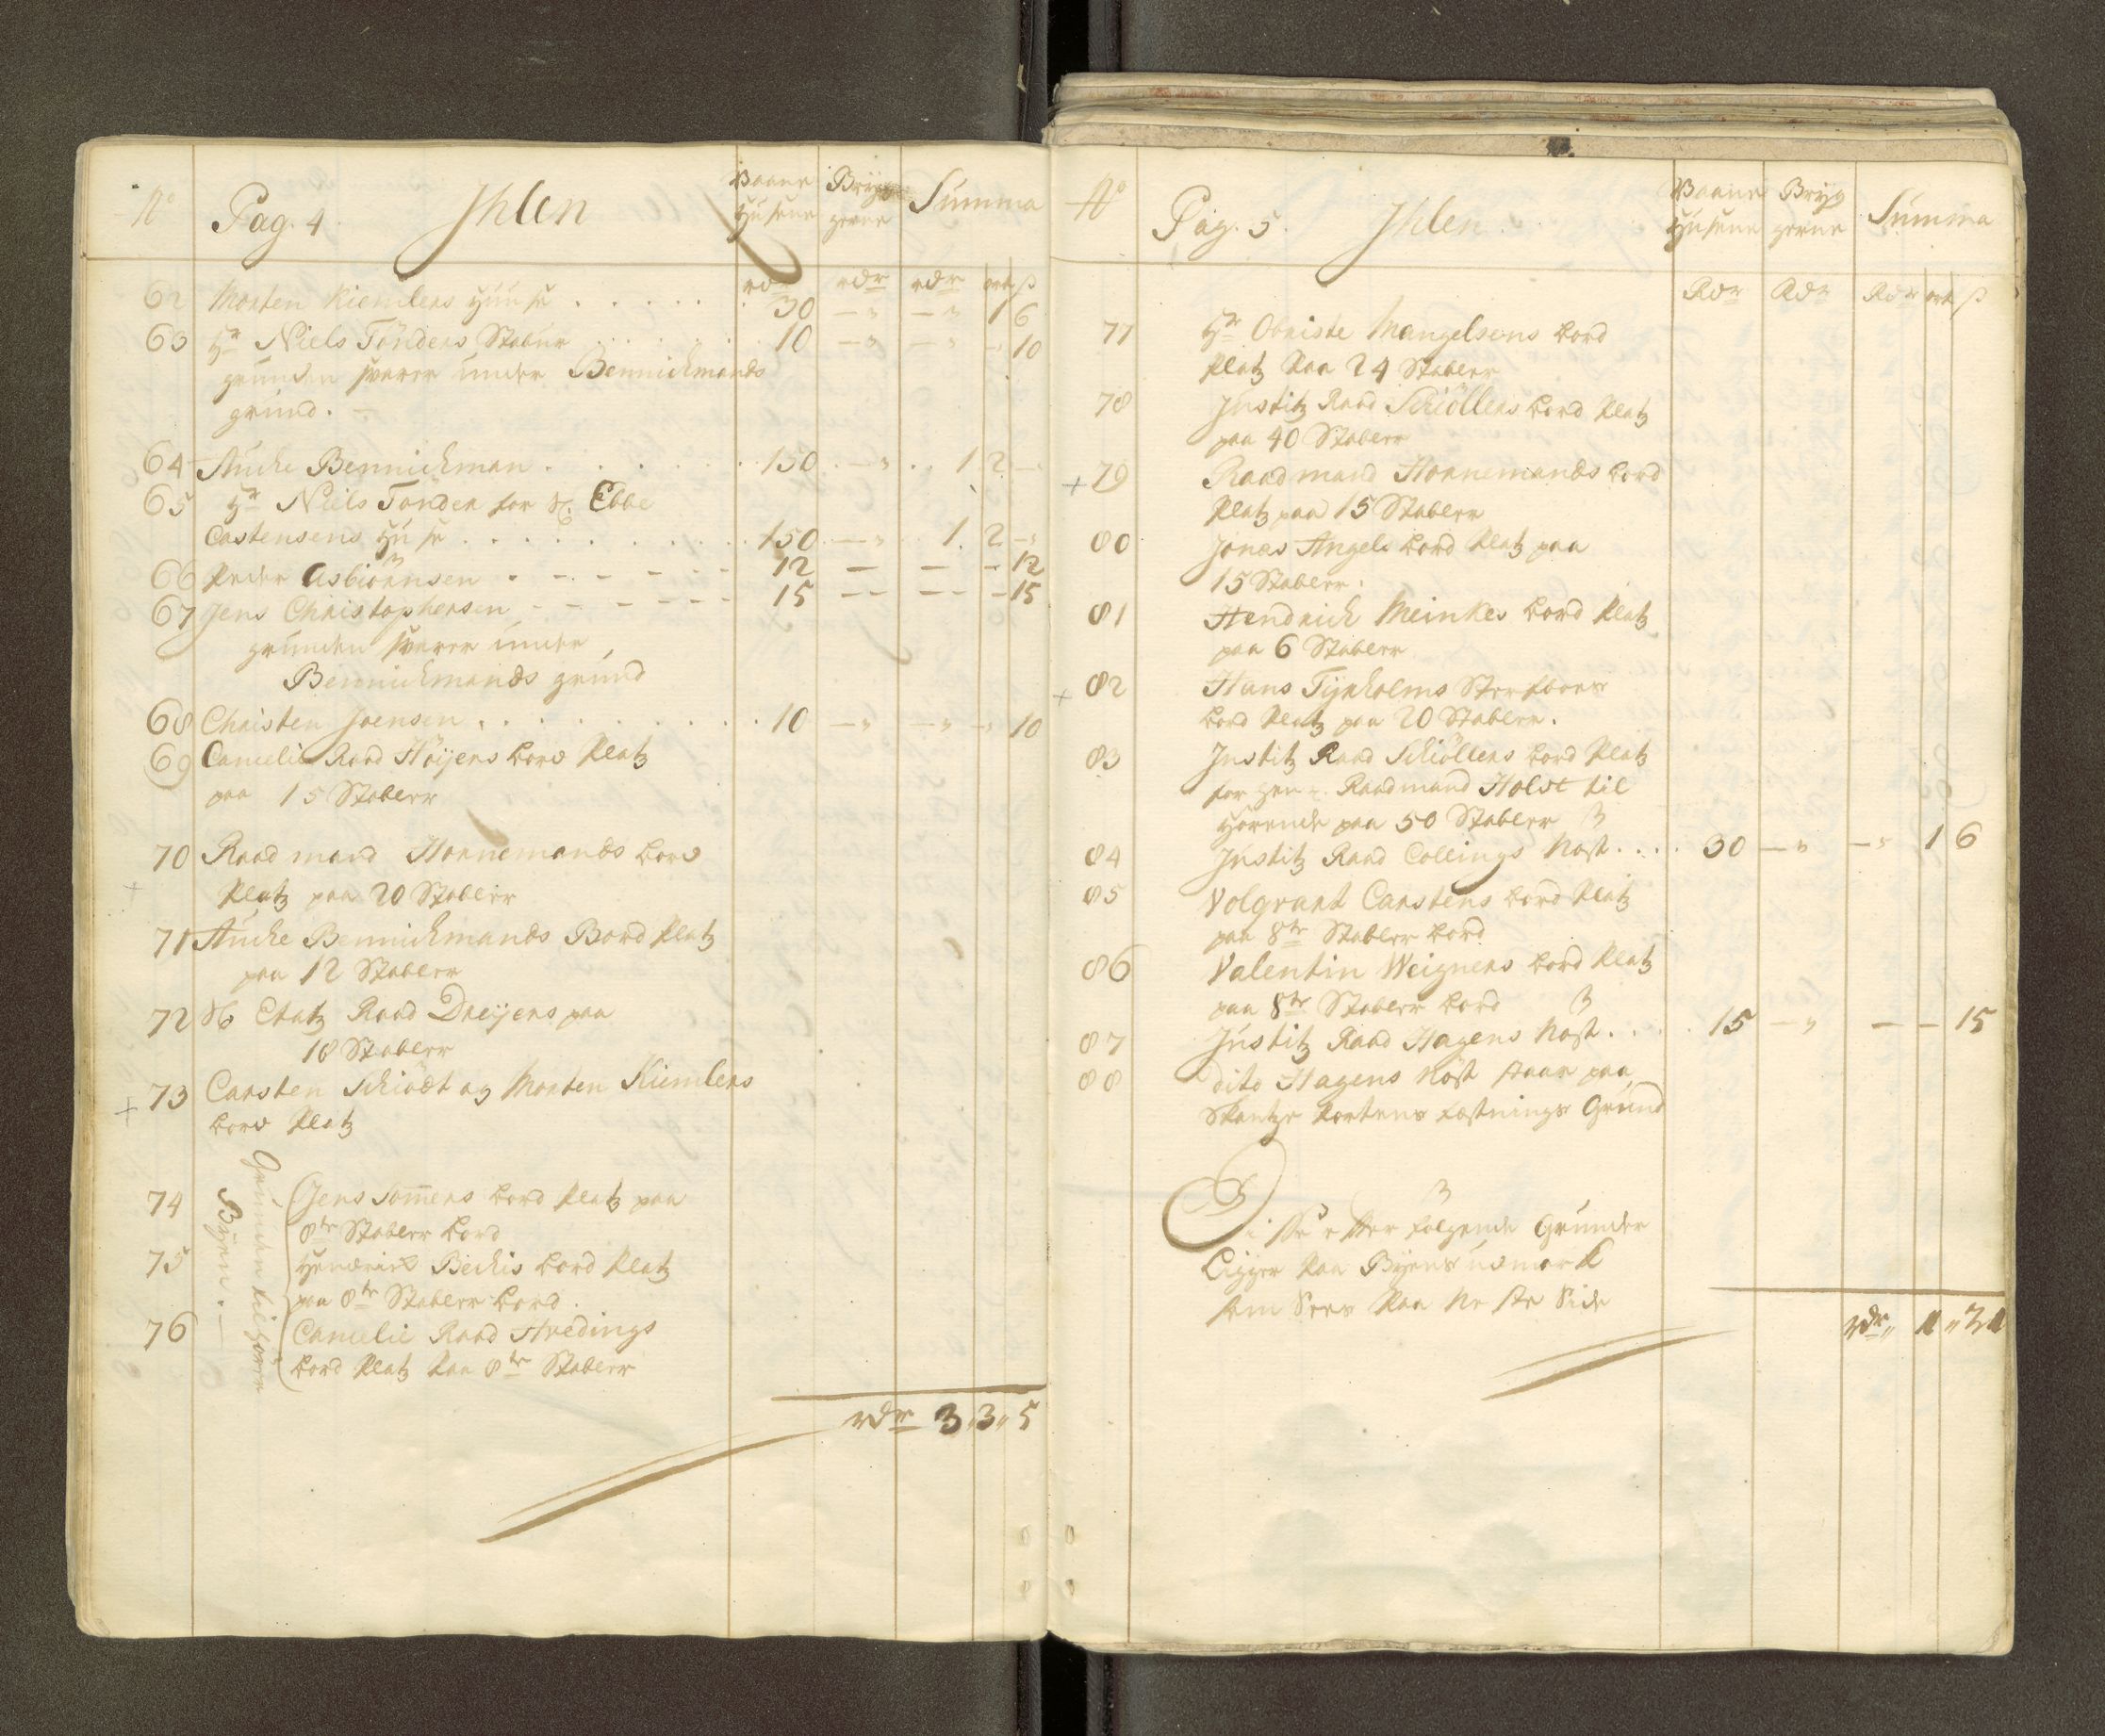 No Pag. 4. Ihlen Vaane Husene Bryg gerne Summa
rdr rdr rdr ort ß
62 Morten Kiemlers Huuse . . . . . 30 — „ — „ 1 6
63 Hr Niels Tönders Stabur . . . . . 10 — „ — „ — 10
grunden svarer under Bennichmands
grund. —
64 Anche Bennichman . . . . . 150 — „ 1 2 —
65 Hr Niels Tönder for Sl. Ebbe
Castensens Huse . . . . . 150 — „ 1. 2 — „
66 Peder Asbiörnsen . - - - - 12 — — — 12
67 Jens Christophersen - - - - - 15 — — — 15
grunden svarer under
Bennichmands grund
68 Christen Joensen . . . . . 10 — „ — „ — „ 10
69 Cancelie Raad Höijers bord Platz
paa 15 Stabler
70 Raad mand Hornemands bord
Platz paa 20 Stabler
71 Anche Bennichmands Bord Platz
paa 12 Stabler
72 Sl Etatz Raad Dreijers paa
18 Stabler
73 Carsten Schiödt og Morten Kiemlers
bord Platz
Grunden tilhörer
Byen. —
74 Jens Som̅ers bord Platz paa
8te Stabler bord
75 Hendrich Bechis bord Platz
paa 8te Stabler bord.
76 Cancelie Raad Hvedings
bord Platz paa 8te Stabler
rdr 3„3„5
No Pag. 5. Ihlen Vaane Husene Bryg gerne Summa
Rdr Rdr Rdr ort ß
77 Hr Obriste Mangelsens bord
Platz paa 24 Stabler
78 Justitz Raad Schiöllers bord Platz
paa 40 Stabler
+ 79 Raad mand Hornemands bord
Platz paa 15 Stabler
80 Jonas Angels bord Platz paa
15 Stabler.
81 Hendrich Meinkes bord Platz
paa 6 Stabler
+ 82 Hans Tyrholms Sterfboes
bord Platz paa 20 Stabler.
83 Justitz Raad Schiöllers bord Platz
for hen Raadmand Holst til
hörende paa 50 Stabler
84 Justitz Raad Collings Nöst . . . . 30 — „ — „ 1 6
85 Volgvart Carstens bord Platz
paa 8te Stabler bord
86 Valentin Weigners bord Platz
paa 8te Stabler bord
87 Justitz Raad Hagens Nöst . . . . 15 — „ — — 15
88 dito Hagens Nöst staar paa
Skantze Portens Fæstnings Grund
Disse efter fölgende Grunder
Ligger paa Byens udmark
som Sees paa ne ste Side
rdr„ 1„21